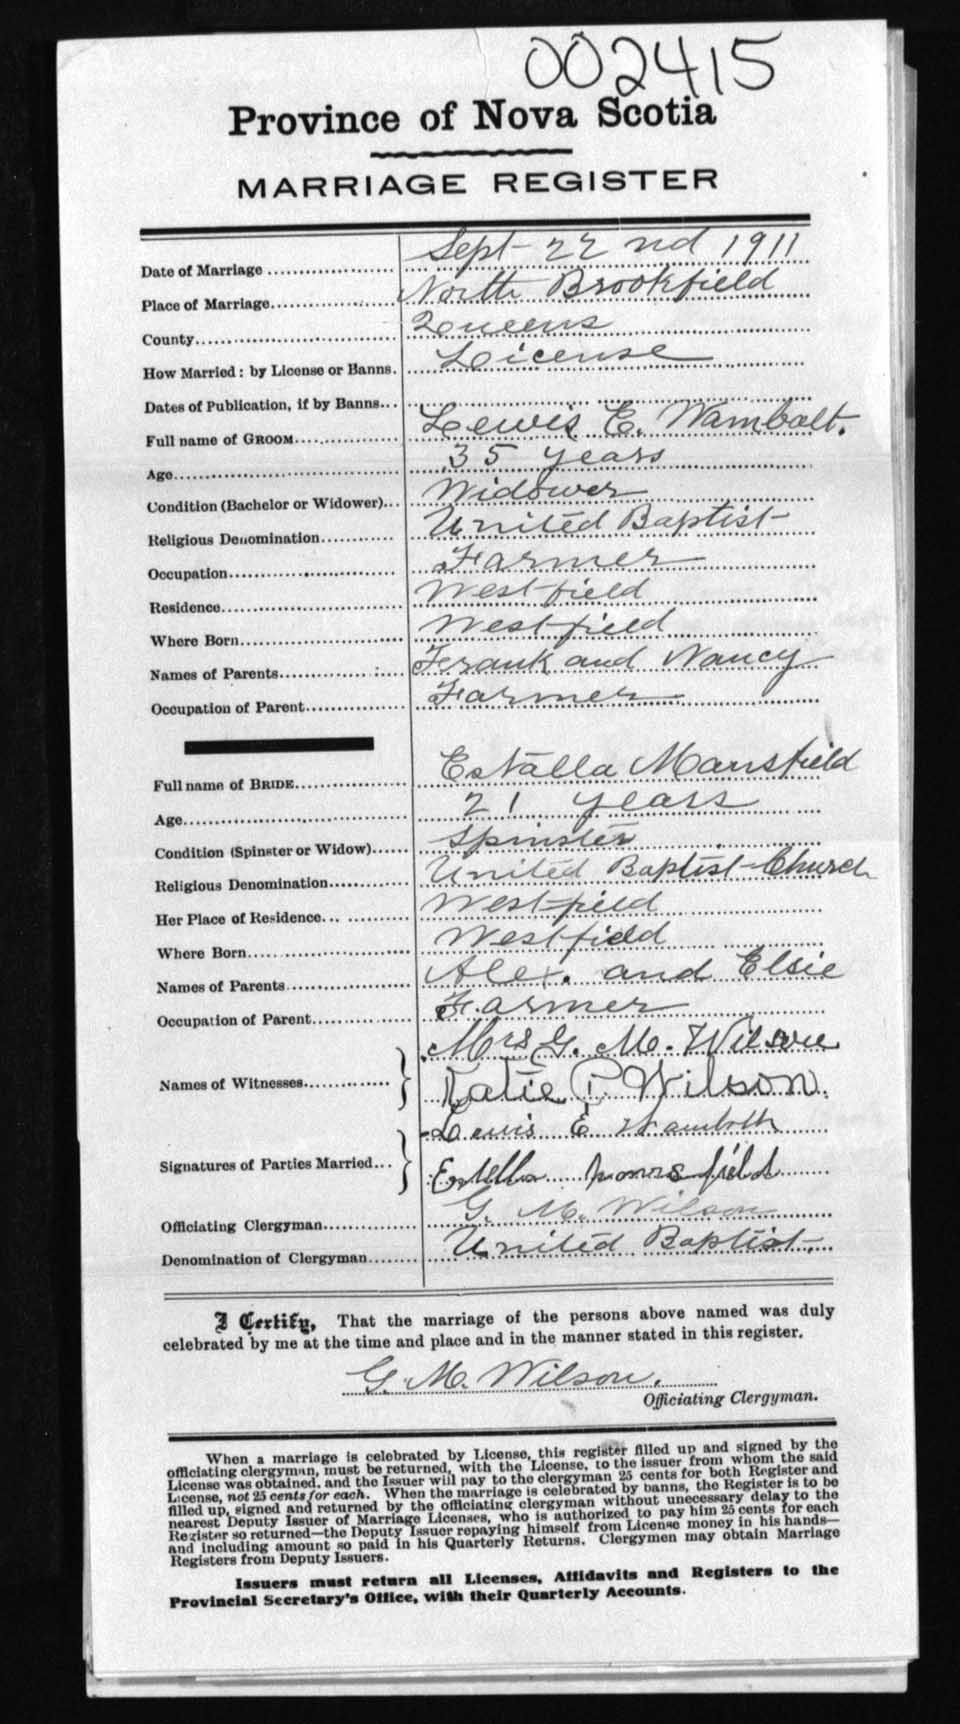 002415
Province of Nova Scotia
MARRIAGE REGISTER
Date of Marriage Sept 22nd 1911
Place of Marriage North Brookfield
County Queens
How Married: by License or Banns. License
Dates of Publication, if by Banns
Full name of GROOM Lewis E. Wambolt.
Age 35 years
Condition (Bachelor or Widower) Widower
Religious Denomination United Baptist
Occupation Farmer
Residence Westfield
Where Born Westfield
Names of Parents Frank and Nancy
Occupation of Parent Farmer
Full name of BRIDE Estalla Mansfield
Age 21 years
Condition (Spinster or Widow) Spinster
Religious Denomination United Baptist Church
Her Place of Residence Westfield
Where Born Westfield
Names of Parents Alex. and Elsie
Occupation of Parent Farmer
Mrs G. M. Wilson
Names of Witnesses Katie P Wilson.
Lewis E
Signatures of Parties Married Estella Mansfield
Officiating Clergyman G. M. Wilson
Denomination of Clergyman United Baptist.
I Certify, That the marriage of the persons above named was duly
celebrated by me at the time and place and in the manner stated in this register.
G. M. Wilson.
Officiating Clergyman.
When a marriage is celebrated by License, this register filled up and signed by the
officiating clergyman, must be returned, with the License, to the issuer from whom the said
License was obtained, and the Issuer will pay to the clergyman 25 cents for both Register and
License, not 25 cents for each. When the marriage is celebrated by banns, the Register is to be
filled up, signed and returned by the officiating clergyman without unnecessary delay to the
nearest Deputy Issuer of Marriage Licenses, who is authorized to pay him 25 cents for each
Register so returned—the Deputy Issuer repaying himself from License money in his hands—
and including amount so paid in his Quarterly Returns. Clergymen may obtain Marriage
Registers from Deputy Issuers.
Issuers must return all Licenses, Affidavits and Registers to the
Provincial Secretary's Office, with their Quarterly Accounts.